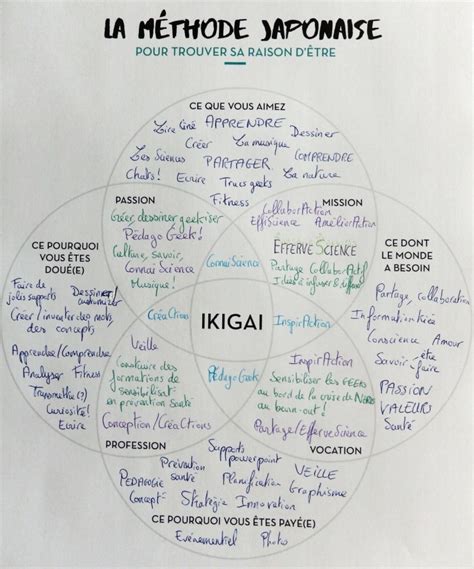 LA MÉTHODE JAPONAISE
POUR TROUVER SA RAISON D'ÊTRE
CE QUE VOUS AIMEZ
Lire Ciné APPRENDRE Dessiner
Créer La musique
Les Sciences PARTAGER COMPRENDRE
Chats! Ecrire Trucs geeks La nature
Fitness
PASSION
Créer, dessiner geekiser
Pédago Geek!
Culture, savoir,
ConnaiScience
Musique!
MISSION
CollaborAction
EffiScience AméliorAction
EFFERVESCIENCE
Partage CollaborActif
Idées à infuser & diffuser
ConnaiScience
CE POURQUOI
VOUS ÊTES
DOUÉ(E)
Faire de
jolis supports
Dessiner/
customiser
Créer/inventer des mots,
des concepts
Apprendre/Comprendre
Analyser Fitness
Transmettre(?)
Curiosité!
Ecrire
CE DONT
LE MONDE
A BESOIN
Partage, Collaboration
Information fiée
Conscience Amour
Savoir-être
faire
PASSION
VALEURS
Santé
CréaCtions
IKIGAI
InspirAction
Veille
Construire des
formations de
sensibilisat°
en prévention santé
Conception/CréaCtions
PédagoGeek
InspirAction
Sensibiliser les GEEKS
au bord de la crise de NERDS
au burn-out!
Partage/EfferveScience
PROFESSION
VOCATION
Supports
powerpoint
Prévention
santé
VEILLE
PEDAGOGIE
Planification
Graphisme
Concept°
Stratégie Innovation
CE POURQUOI VOUS ÊTES PAYÉ(E)
Evénementiel Photo